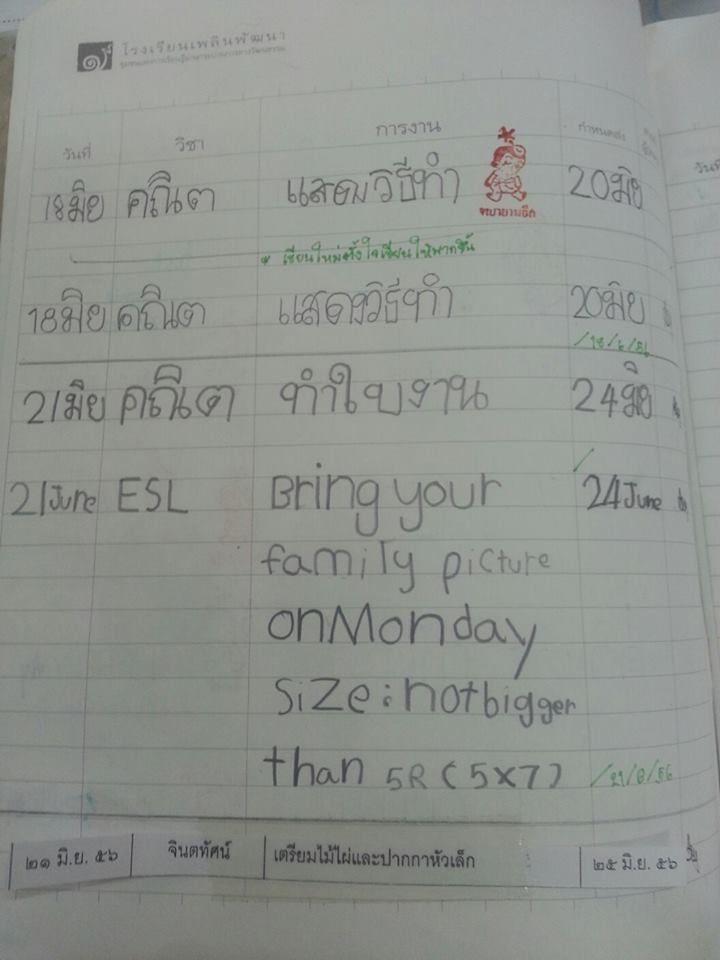 ๑
โรงเรียนเพลินพัฒนา
วันที่ วิชา การงาน กำหนดส่ง
18มิย คณิต แสดงวิธีทำ 20มิย
พยายามอีก
* เขียนใหม่ตั้งใจเขียนให้มากขึ้น
18มิย คณิต แสดงวิธีทำ 20มิย
/18/6/56
21มิย คณิต ทำใบงาน 24มิย
21June ESL Bring your 24June
family picture
on Monday
size: not bigger
than 5R (5x7) /21/6/56
๒๑ มิ.ย. ๕๖ จินตทัศน์ เตรียมไม้ไผ่และปากกาหัวเล็ก ๒๕ มิ.ย. ๕๖